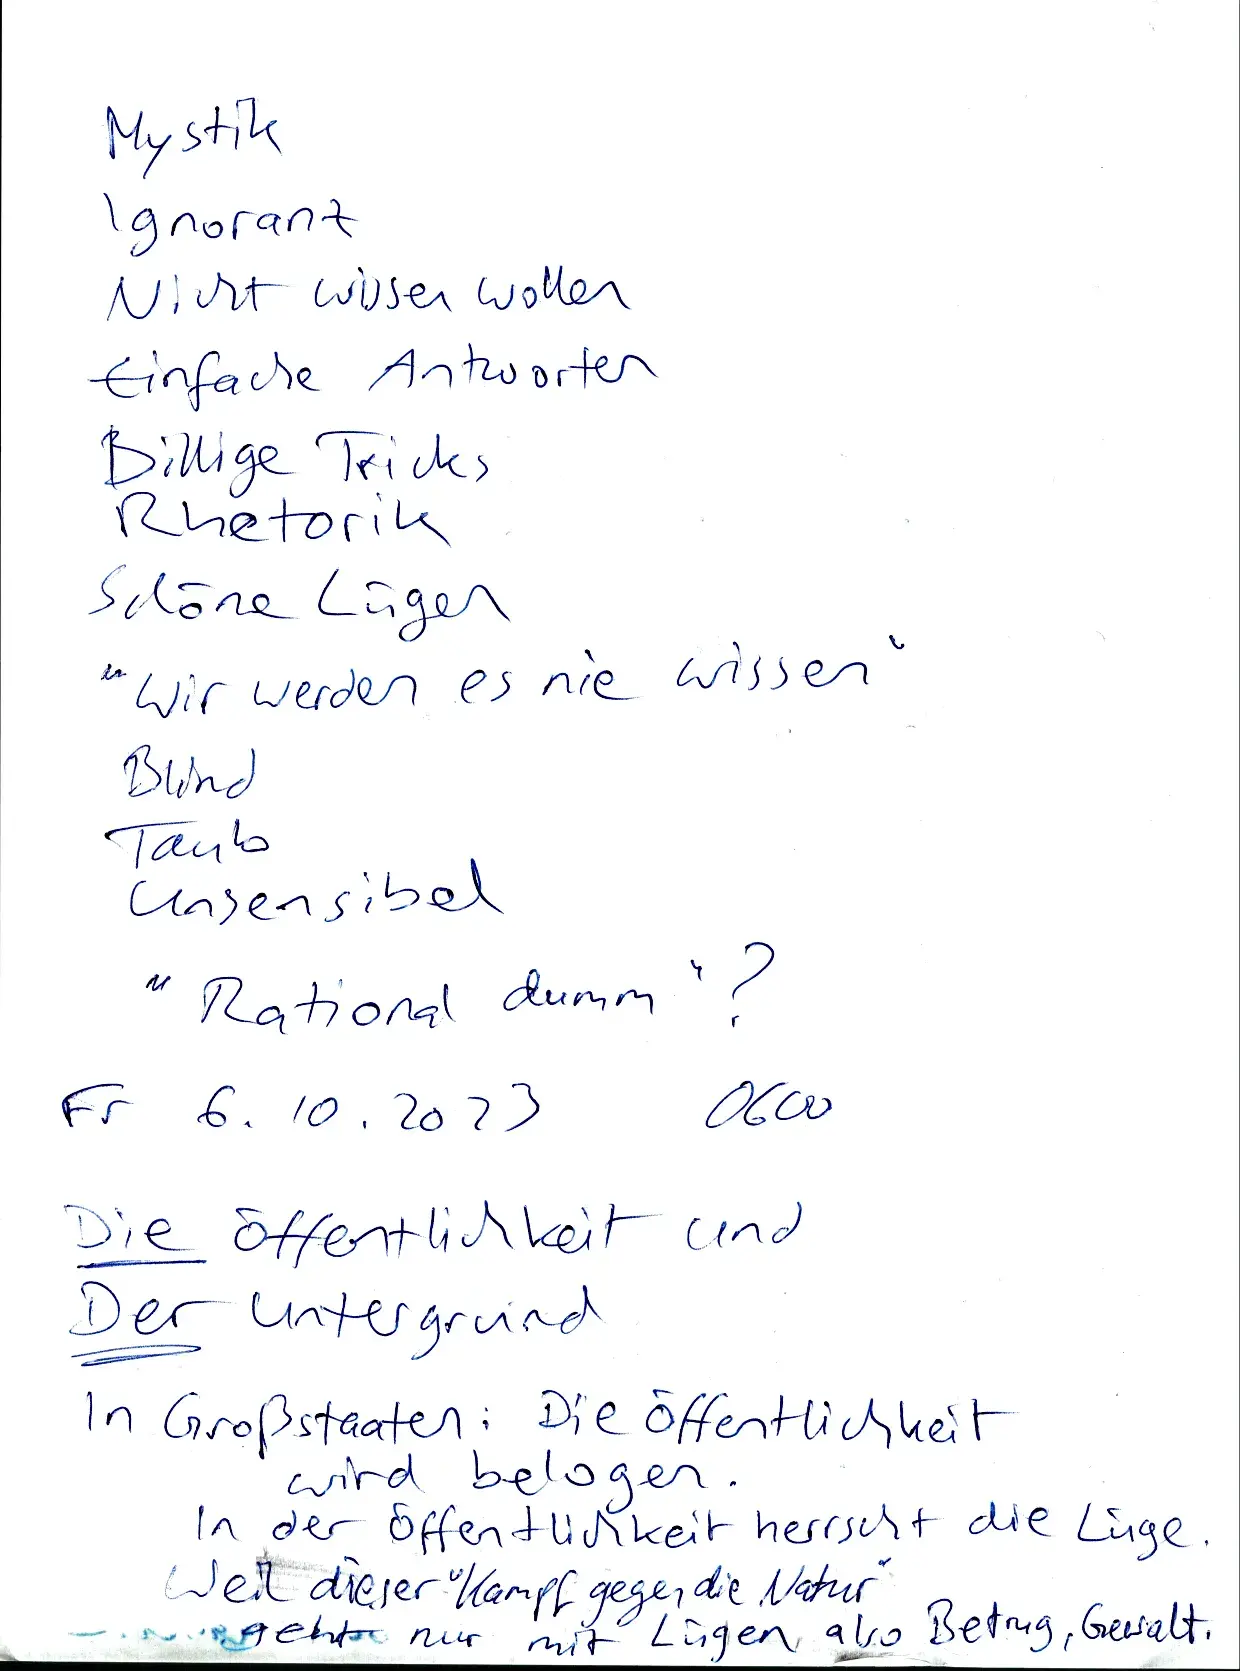 Mystik
Ignorant
Nicht wissen wollen
Einfache Antworten
Billige Tricks
Rhetorik
Schöne Lügen
"Wir werden es nie wissen"
Blind
Taub
Unsensibel
"Rational dumm"?
Fr 6.10.2023 0600
Die Öffentlichkeit und
Der Untergrund
In Großstaaten: Die Öffentlichkeit
wird belogen.
In der Öffentlichkeit herrscht die Lüge.
Weil dieser "Kampf gegen die Natur"
geht nur mit Lügen, also Betrug, Gewalt.